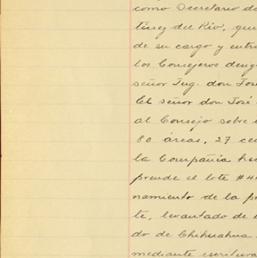 como Secretario de
tínez del Río, que
de su cargo y entr
los Consejeros deng
señor Ing. don Jos
El señor don José
al Consejo sobre
80 áreas, 27 cen
la Compañía he
prende el lote #4
namiento de la p
te, levantado de
do de Chihuahua
mediante escritur